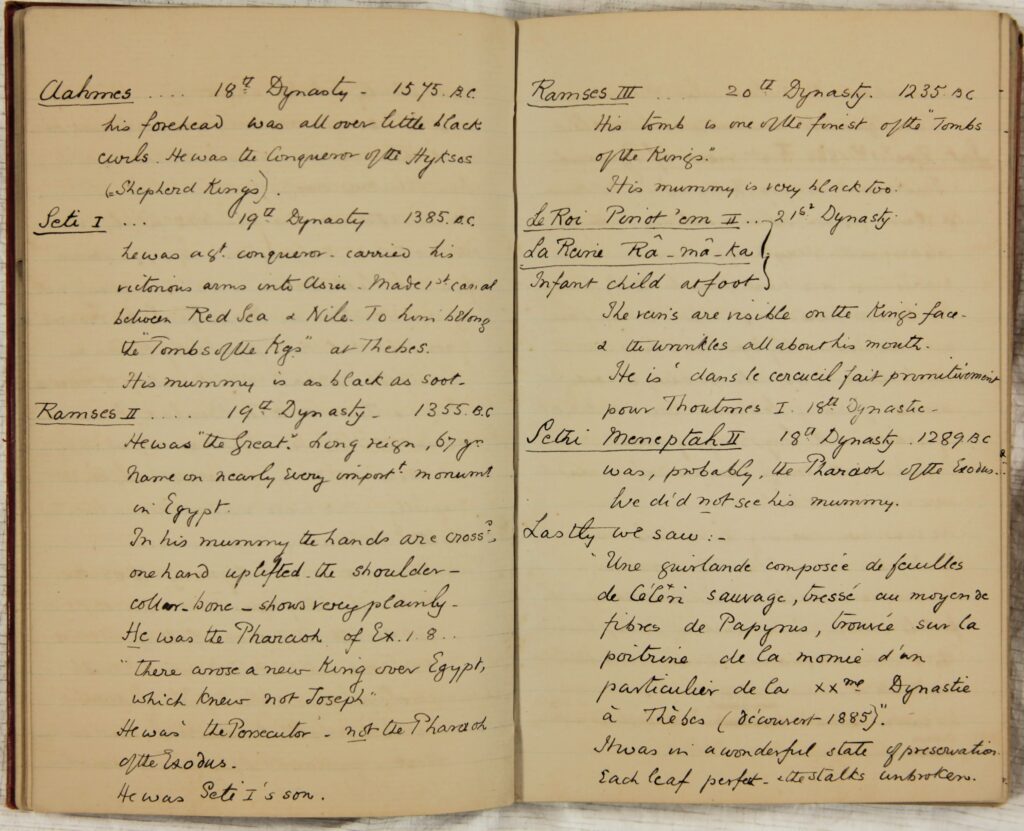 Aahmes .... 18th Dynasty - 1575. B.C.
his forehead was all over little black
curls. He was the Conqueror of the Hyksos
(= Shepherd Kings).
Seti I ... 19th Dynasty 1385. B.C.
he was a gt. conqueror - carried his
victorious arms into Asia - Made 1st canal
between Red Sea & Nile. To him belong
the "Tombs of the Kgs" at Thebes.
His mummy is as black as soot.
Ramses II .... 19th Dynasty - 1355. B.C
He was "the Great". Long reign, 67 yrs
Name on nearly every import't. monumt
in Egypt.
In his mummy the hands are cross'd,
one hand uplifted. the shoulder -
collar-bone - shows very plainly -
He was the Pharaoh of Ex. 1. 8..
"there arose a new King over Egypt,
which knew not Joseph"
He was the Persecutor - not the Pharaoh
of the Exodus.
He was Seti I's son.
Ramses III ... 20th Dynasty. 1235. BC
His tomb is one of the finest of the "Tombs
of the Kings."
His mummy is very black too.
Le Roi Pinot'em II .. 21st Dynasty
La Reine Râ-mâ-ka
Infant child at foot
The veins are visible on the King's face -
& the wrinkles all about his mouth.
He is "dans le cercueil fait primitivement
pour Thoutmes I. 18th Dynastie -
Sethi Meneptah II 18th Dynasty. 1289. BC
was, probably, the Pharaoh of the Exodus.
We did not see his mummy.
Lastly we saw :-
"Une guirlande composée de feuilles
de Céléri sauvage, tressé au moyen de
fibres de Papyrus, trouvée sur la
poitrine de la momie d'un
particulier de la XXme Dynastie
à Thèbes (découvert 1885)".
It was in a wonderful state of preservation.
Each leaf perfect - the stalks unbroken.